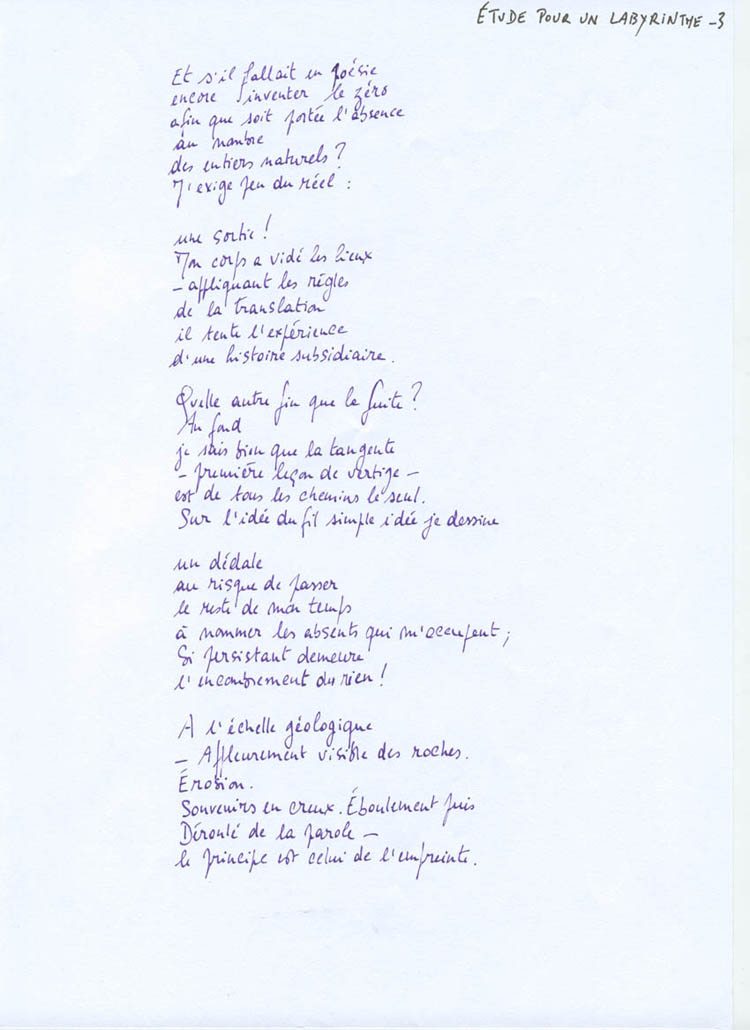 ÉTUDE POUR UN LABYRINTHE -3
Et s'il fallait en poésie
encore inventer le zéro
afin que soit portée l'absence
au nombre
des entiers naturels ?
J'exige peu du réel :
une sortie !
Mon corps a vidé les lieux
- appliquant les règles
de la translation
il tente l'expérience
d'une histoire subsidiaire.
Quelle autre fin que la fuite ?
Au fond
je sais bien que la tangente
- première leçon de vertige -
est de tous les chemins le seul.
Sur l'idée du fil simple idée je dessine
un dédale
au risque de passer
le reste de mon temps
à nommer les absents qui m'occupent ;
Si persistant demeure
l'encombrement du rien !
A l'échelle géologique
- Affleurement visible des roches.
Érosion.
Souvenirs en creux. Éboulement puis
Déroulé de la parole -
le principe est celui de l'empreinte.